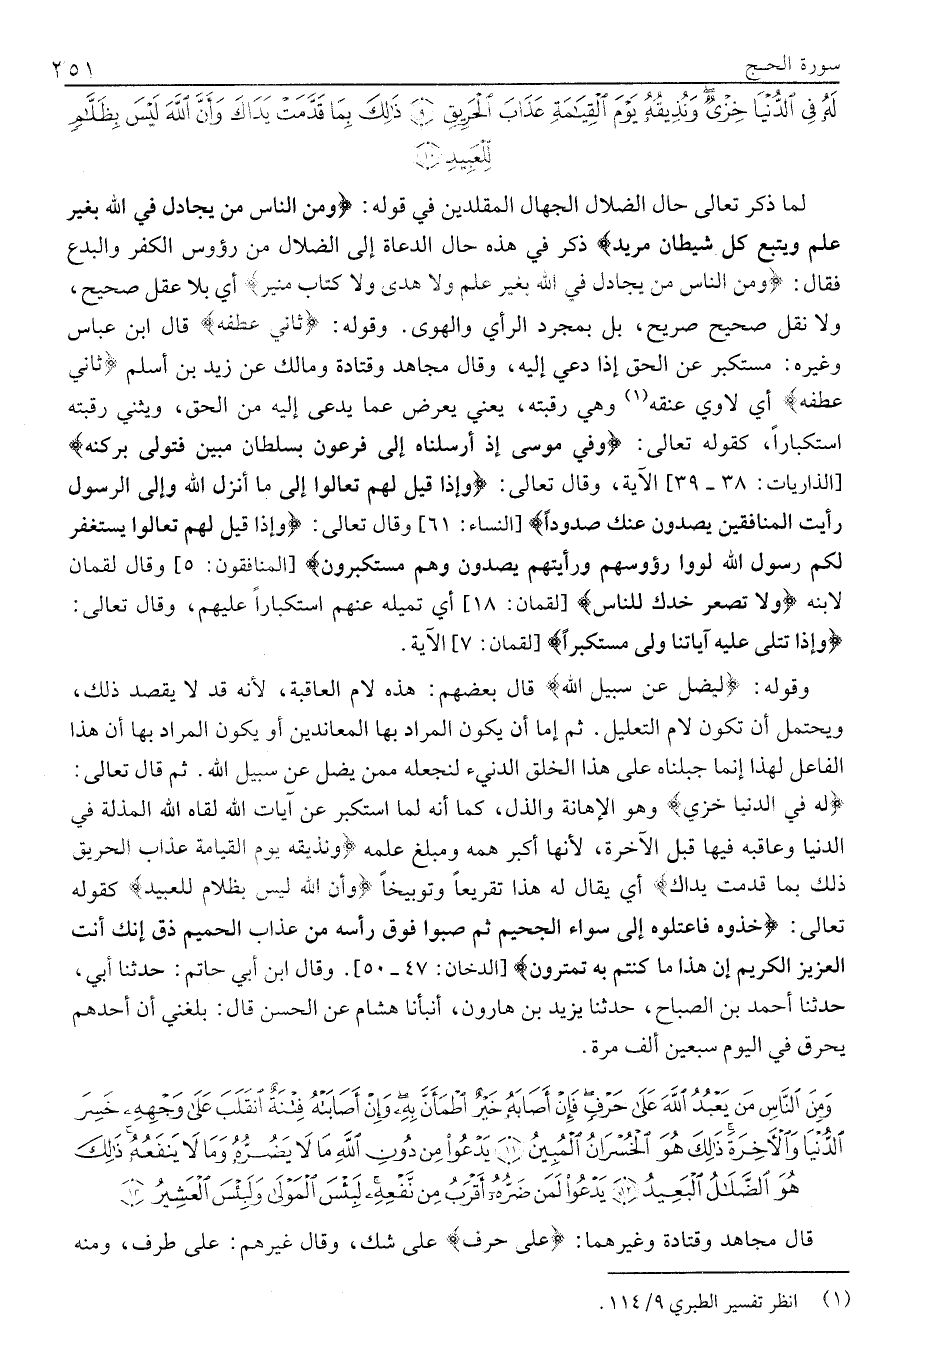 سورة الحـج
٢٥١
لَهُۥ فِى ٱلدُّنْيَا خِزْىٌۖ وَنُذِيقُهُۥ يَوْمَ ٱلْقِيَٰمَةِ عَذَابَ ٱلْحَرِيقِ ﴿٩﴾ ذَٰلِكَ بِمَا قَدَّمَتْ يَدَاكَ وَأَنَّ ٱللَّهَ لَيْسَ بِظَلَّٰمٍ
لِّلْعَبِيدِ ﴿١٠﴾
لما ذكر تعالى حال الضلال الجهال المقلدين في قوله: ﴿ومن الناس من يجادل في الله بغير
علم ويتبع كل شيطان مريد﴾ ذكر في هذه حال الدعاة إلى الضلال من رؤوس الكفر والبدع
فقال: ﴿ومن الناس من يجادل في الله بغير علم ولا هدى ولا كتاب منير﴾ أي بلا عقل صحيح،
ولا نقل صحيح صريح، بل بمجرد الرأي والهوى. وقوله: ﴿ثاني عطفه﴾ قال ابن عباس
وغيره: مستكبر عن الحق إذا دعي إليه، وقال مجاهد وقتادة ومالك عن زيد بن أسلم ﴿ثاني
عطفه﴾ أي لاوي عنقه(١) وهي رقبته، يعني يعرض عما يدعى إليه من الحق، ويثني رقبته
استكباراً، كقوله تعالى: ﴿وفي موسى إذ أرسلناه إلى فرعون بسلطان مبين فتولى بركنه﴾
[الذاريات: ٣٨ ـ ٣٩] الآية، وقال تعالى: ﴿وإذا قيل لهم تعالوا إلى ما أنزل الله وإلى الرسول
رأيت المنافقين يصدون عنك صدوداً﴾ [النساء: ٦١] وقال تعالى: ﴿وإذا قيل لهم تعالوا يستغفر
لكم رسول الله لووا رؤوسهم ورأيتهم يصدون وهم مستكبرون﴾ [المنافقون: ٥] وقال لقمان
لابنه ﴿ولا تصعر خدك للناس﴾ [لقمان: ١٨] أي تميله عنهم استكباراً عليهم، وقال تعالى:
﴿وإذا تتلى عليه آياتنا ولى مستكبراً﴾ [لقمان: ٧] الآية.
وقوله: ﴿ليضل عن سبيل الله﴾ قال بعضهم: هذه لام العاقبة، لأنه قد لا يقصد ذلك،
ويحتمل أن تكون لام التعليل. ثم إما أن يكون المراد بها المعاندين أو يكون المراد بها أن هذا
الفاعل لهذا إنما جبلناه على هذا الخلق الدنيء لنجعله ممن يضل عن سبيل الله. ثم قال تعالى:
﴿له في الدنيا خزي﴾ وهو الإهانة والذل، كما أنه لما استكبر عن آيات الله لقاه الله المذلة في
الدنيا وعاقبه فيها قبل الآخرة، لأنها أكبر همه ومبلغ علمه ﴿ونذيقه يوم القيامة عذاب الحريق
ذلك بما قدمت يداك﴾ أي يقال له هذا تقريعاً وتوبيخاً ﴿وأن الله ليس بظلام للعبيد﴾ كقوله
تعالى: ﴿خذوه فاعتلوه إلى سواء الجحيم ثم صبوا فوق رأسه من عذاب الحميم ذق إنك أنت
العزيز الكريم إن هذا ما كنتم به تمترون﴾ [الدخان: ٤٧ ـ ٥٠]. وقال ابن أبي حاتم: حدثنا أبي،
حدثنا أحمد بن الصباح، حدثنا يزيد بن هارون، أنبأنا هشام عن الحسن قال: بلغني أن أحدهم
يحرق في اليوم سبعين ألف مرة.
وَمِنَ ٱلنَّاسِ مَن يَعْبُدُ ٱللَّهَ عَلَىٰ حَرْفٍۖ فَإِنْ أَصَابَهُۥ خَيْرٌ ٱطْمَأَنَّ بِهِۦۖ وَإِنْ أَصَابَتْهُ فِتْنَةٌ ٱنقَلَبَ عَلَىٰ وَجْهِهِۦ خَسِرَ
ٱلدُّنْيَا وَٱلْأَخِرَةَۚ ذَٰلِكَ هُوَ ٱلْخُسْرَانُ ٱلْمُبِينُ ﴿١١﴾ يَدْعُوا۟ مِن دُونِ ٱللَّهِ مَا لَا يَضُرُّهُۥ وَمَا لَا يَنفَعُهُۥۚ ذَٰلِكَ
هُوَ ٱلضَّلَٰلُ ٱلْبَعِيدُ ﴿١٢﴾ يَدْعُوا۟ لَمَن ضَرُّهُۥٓ أَقْرَبُ مِن نَّفْعِهِۦۚ لَبِئْسَ ٱلْمَوْلَىٰ وَلَبِئْسَ ٱلْعَشِيرُ ﴿١٣﴾
قال مجاهد وقتادة وغيرهما: ﴿على حرف﴾ على شك، وقال غيرهم: على طرف، ومنه
(١) انظر تفسير الطبري ٩/ ١١٤.